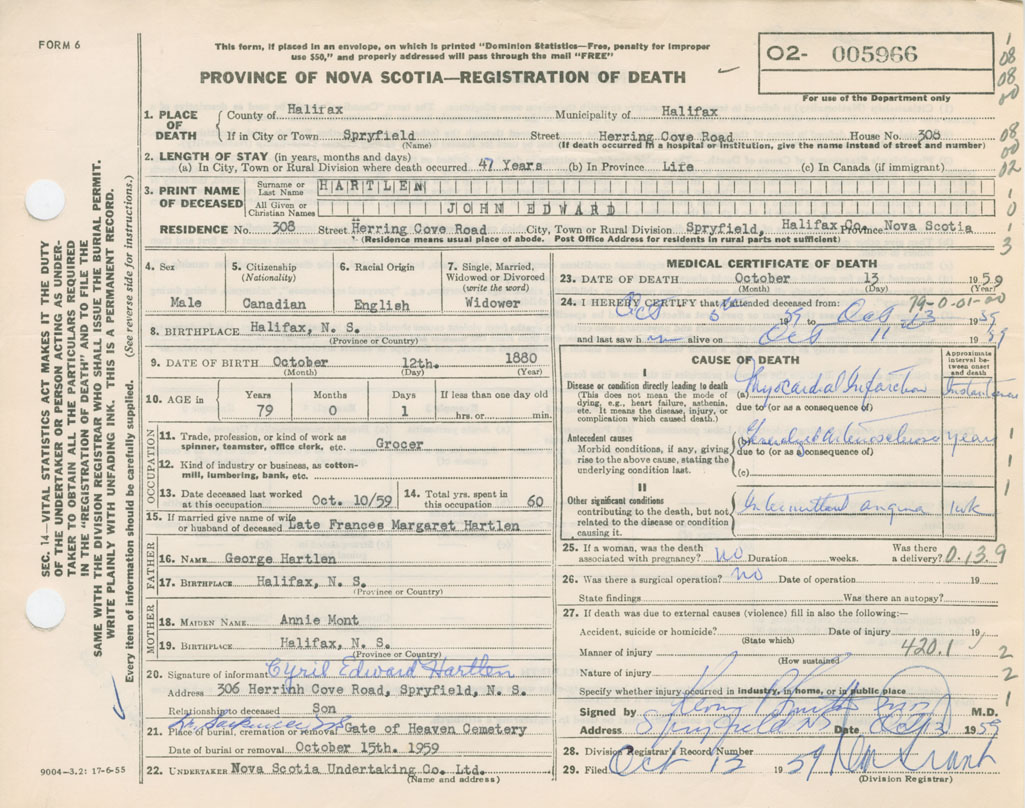 FORM 6
This form, if placed in an envelope, on which is printed "Dominion Statistics—Free, penalty for improper
use $50," and properly addressed will pass through the mail "FREE"
PROVINCE OF NOVA SCOTIA—REGISTRATION OF DEATH
O2- 005966
For use of the Department only
1. PLACE OF DEATH
County of Halifax Municipality of Halifax
If in City or Town Spryfield Street Herring Cove Road House No. 308
(Name) (If death occurred in a hospital or institution, give the name instead of street and number)
2. LENGTH OF STAY (in years, months and days)
(a) In City, Town or Rural Division where death occurred 47 Years (b) In Province Life (c) In Canada (if immigrant)
3. PRINT NAME OF DECEASED
Surname or Last Name HARTLEN
All Given or Christian Names JOHN EDWARD
RESIDENCE No. 308 Street Herring Cove Road City, Town or Rural Division Spryfield, Halifax Co. Province Nova Scotia
(Residence means usual place of abode. Post Office Address for residents in rural parts not sufficient)
SEC. 14—VITAL STATISTICS ACT MAKES IT THE DUTY
OF THE UNDERTAKER OR PERSON ACTING AS UNDER-
TAKER TO OBTAIN ALL THE PARTICULARS REQUIRED
IN THE "REGISTRATION OF DEATH" AND TO FILE THE
SAME WITH THE DIVISION REGISTRAR WHO SHALL ISSUE THE BURIAL PERMIT.
WRITE PLAINLY WITH UNFADING INK. THIS IS A PERMANENT RECORD.
Every item of information should be carefully supplied. (See reverse side for instructions.)
4. Sex
Male
5. Citizenship
(Nationality)
Canadian
6. Racial Origin
English
7. Single, Married,
Widowed or Divorced
(write the word)
Widower
8. BIRTHPLACE Halifax, N. S.
(Province or Country)
9. DATE OF BIRTH October 12th. 1880
(Month) (Day) (Year)
10. AGE in
Years Months Days If less than one day old
79 0 1 hrs. or min.
OCCUPATION
11. Trade, profession, or kind of work as
spinner, teamster, office clerk, etc. Grocer
12. Kind of industry or business, as cotton-
mill, lumbering, bank, etc.
13. Date deceased last worked
at this occupation Oct. 10/59
14. Total yrs. spent in
this occupation 60
15. If married give name of wife
or husband of deceased Late Frances Margaret Hartlen
FATHER
16. NAME George Hartlen
17. BIRTHPLACE Halifax, N. S.
(Province or Country)
MOTHER
18. MAIDEN NAME Annie Mont
19. BIRTHPLACE Halifax, N. S.
(Province or Country)
20. Signature of informant Cyril Edward Hartlen
Address 306 Herrinh Cove Road, Spryfield, N. S.
Relationship to deceased Son
21. Place of burial, cremation or removal Gate of Heaven Cemetery
Date of burial or removal October 15th. 1959
22. UNDERTAKER Nova Scotia Undertaking Co. Ltd.
(Name and address)
9004—3.2: 17-6-55
MEDICAL CERTIFICATE OF DEATH
23. DATE OF DEATH October 13 1959
(Month) (Day) (Year)
79-0-01-00
24. I HEREBY CERTIFY that I attended deceased from:
Oct 5 1959 Oct 13 1959
and last saw h im alive on Oct 11 1959
CAUSE OF DEATH
Approximate interval between onset and death
I
Disease or condition directly leading to death
(This does not mean the mode of
dying, e.g., heart failure, asthenia,
etc. It means the disease, injury, or
complication which caused death.)
(a) Myocardial Infarction
due to (or as a consequence of)
Antecedent causes
Morbid conditions, if any, giving
rise to the above cause, stating the
underlying condition last.
(b) Generalized Arteriosclerosis years
due to (or as a consequence of)
(c)
II
Other significant conditions
contributing to the death, but not
related to the disease or condition
causing it.
Intermittent angina 1 wk
25. If a woman, was the death
associated with pregnancy? no Duration weeks. Was there
a delivery?
0.13.9
26. Was there a surgical operation? no Date of operation 19
State findings Was there an autopsy?
27. If death was due to external causes (violence) fill in also the following:—
Accident, suicide or homicide? Date of injury 19
(State which)
420.1
Manner of injury
(How sustained
Nature of injury
Specify whether injury occurred in industry, in home, or in public place
Signed by M.D.
Address Spryfield NS Date Oct 13 1959
28. Division Registrar's Record Number
29. Filed Oct 13 1959
(Division Registrar)